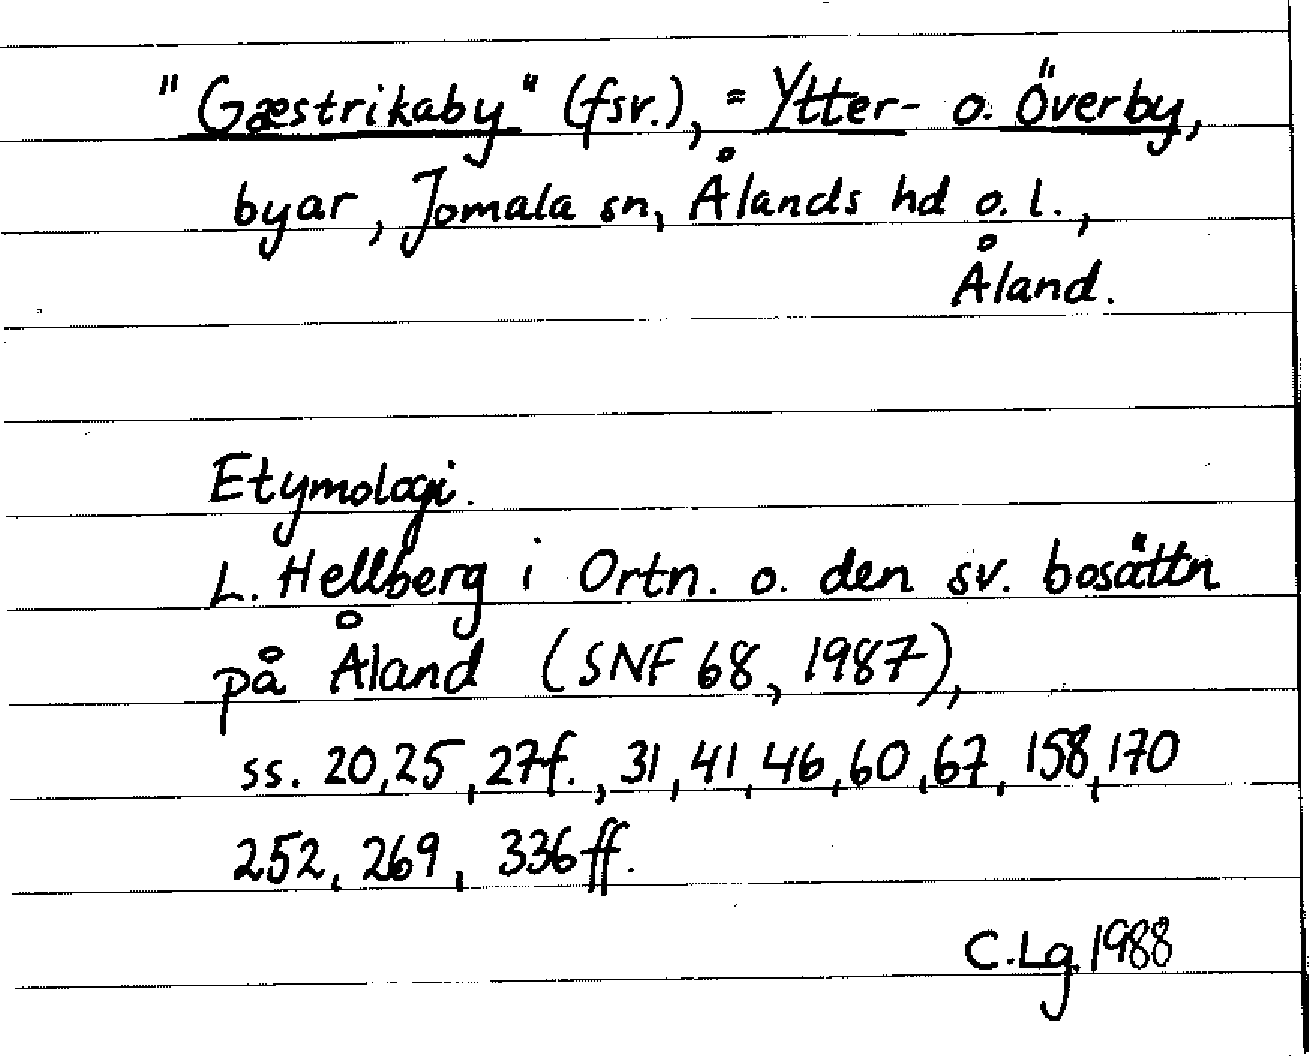 "Gæstrikaby" (fsv.), = Ytter- o. Överby,
byar, Jomala sn, Ålands hd o. l.,
Åland.
Etymologi.
L. Hellberg i Ortn. o. den sv. bosättn
på Åland (SNF 68, 1987),
ss. 20, 25, 27f., 31, 41, 46, 60, 67, 158, 170
252, 269, 336ff.
C.Lg. 1988